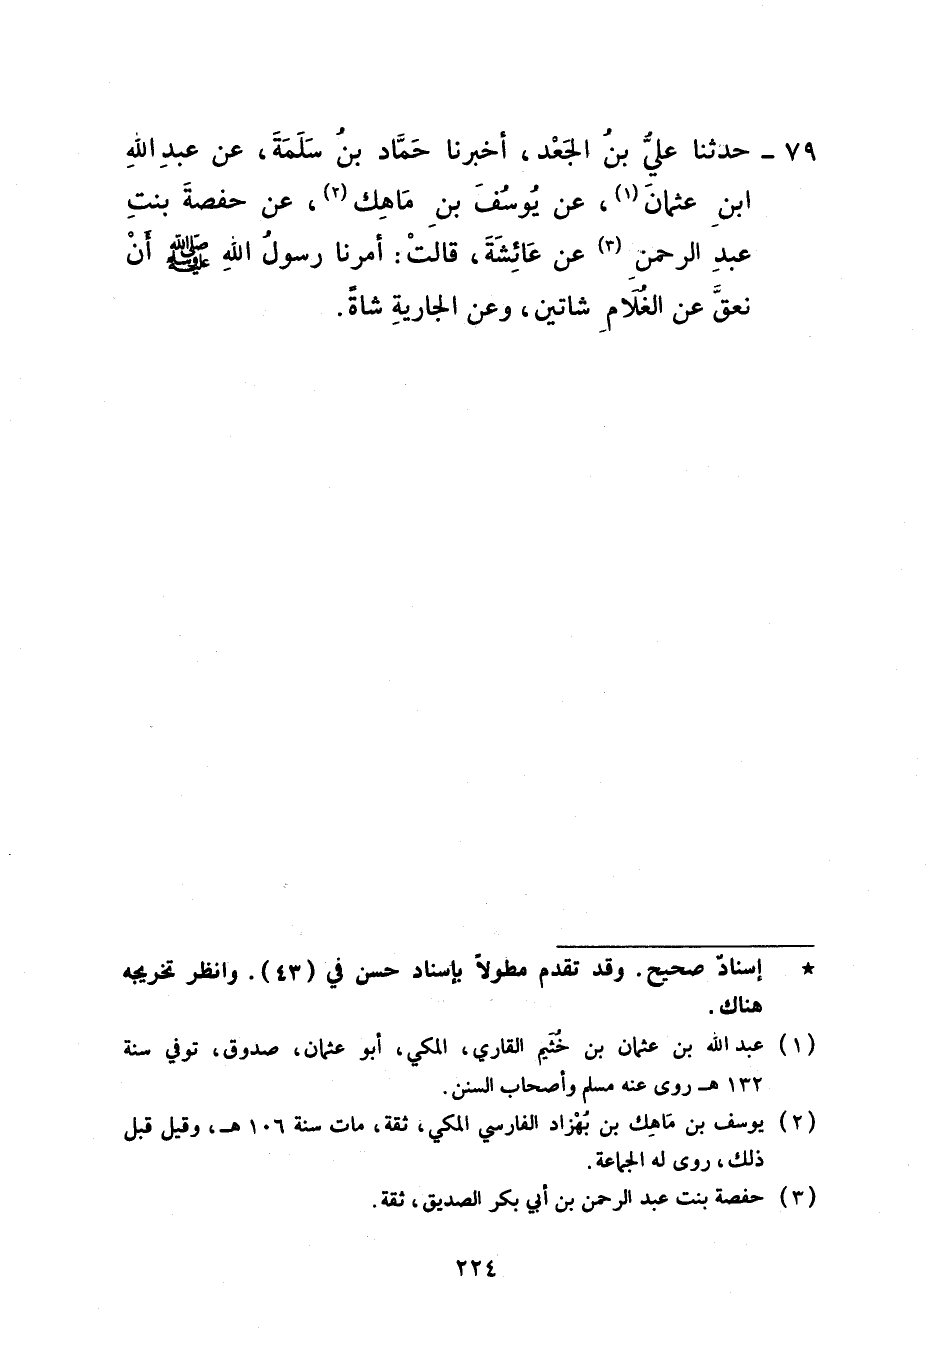 ٧٩ - حدثنا عليُّ بنُ الجَعْد، أخبرنا حَمَّاد بنُ سَلَمَةَ، عن عبدِ اللهِ
ابنِ عثمانَ(١)، عن يُوسُفَ بنِ مَاهِك(٢)، عن حفصةَ بنتِ
عبدِ الرحمنِ(٣) عن عَائِشَةَ، قالتْ: أمرنا رسولُ اللهِ ﷺ أَنْ
نعقَّ عن الغُلَامِ شاتين، وعن الجاريةِ شاةً.
★ إسنادٌ صحيح. وقد تقدم مطولاً بإسناد حسن في (٤٣). وانظر تخريجه
هناك.
(١) عبد الله بن عثمان بن خُثَيم القاري، المكي، أبو عثمان، صدوق، توفي سنة
١٣٢ هـ روى عنه مسلم وأصحاب السنن.
(٢) يوسف بن مَاهِك بن بُهْزاد الفارسي المكي، ثقة، مات سنة ١٠٦ هـ، وقيل قبل
ذلك، روى له الجماعة.
(٣) حفصة بنت عبد الرحمن بن أبي بكر الصديق، ثقة.
٢٢٤